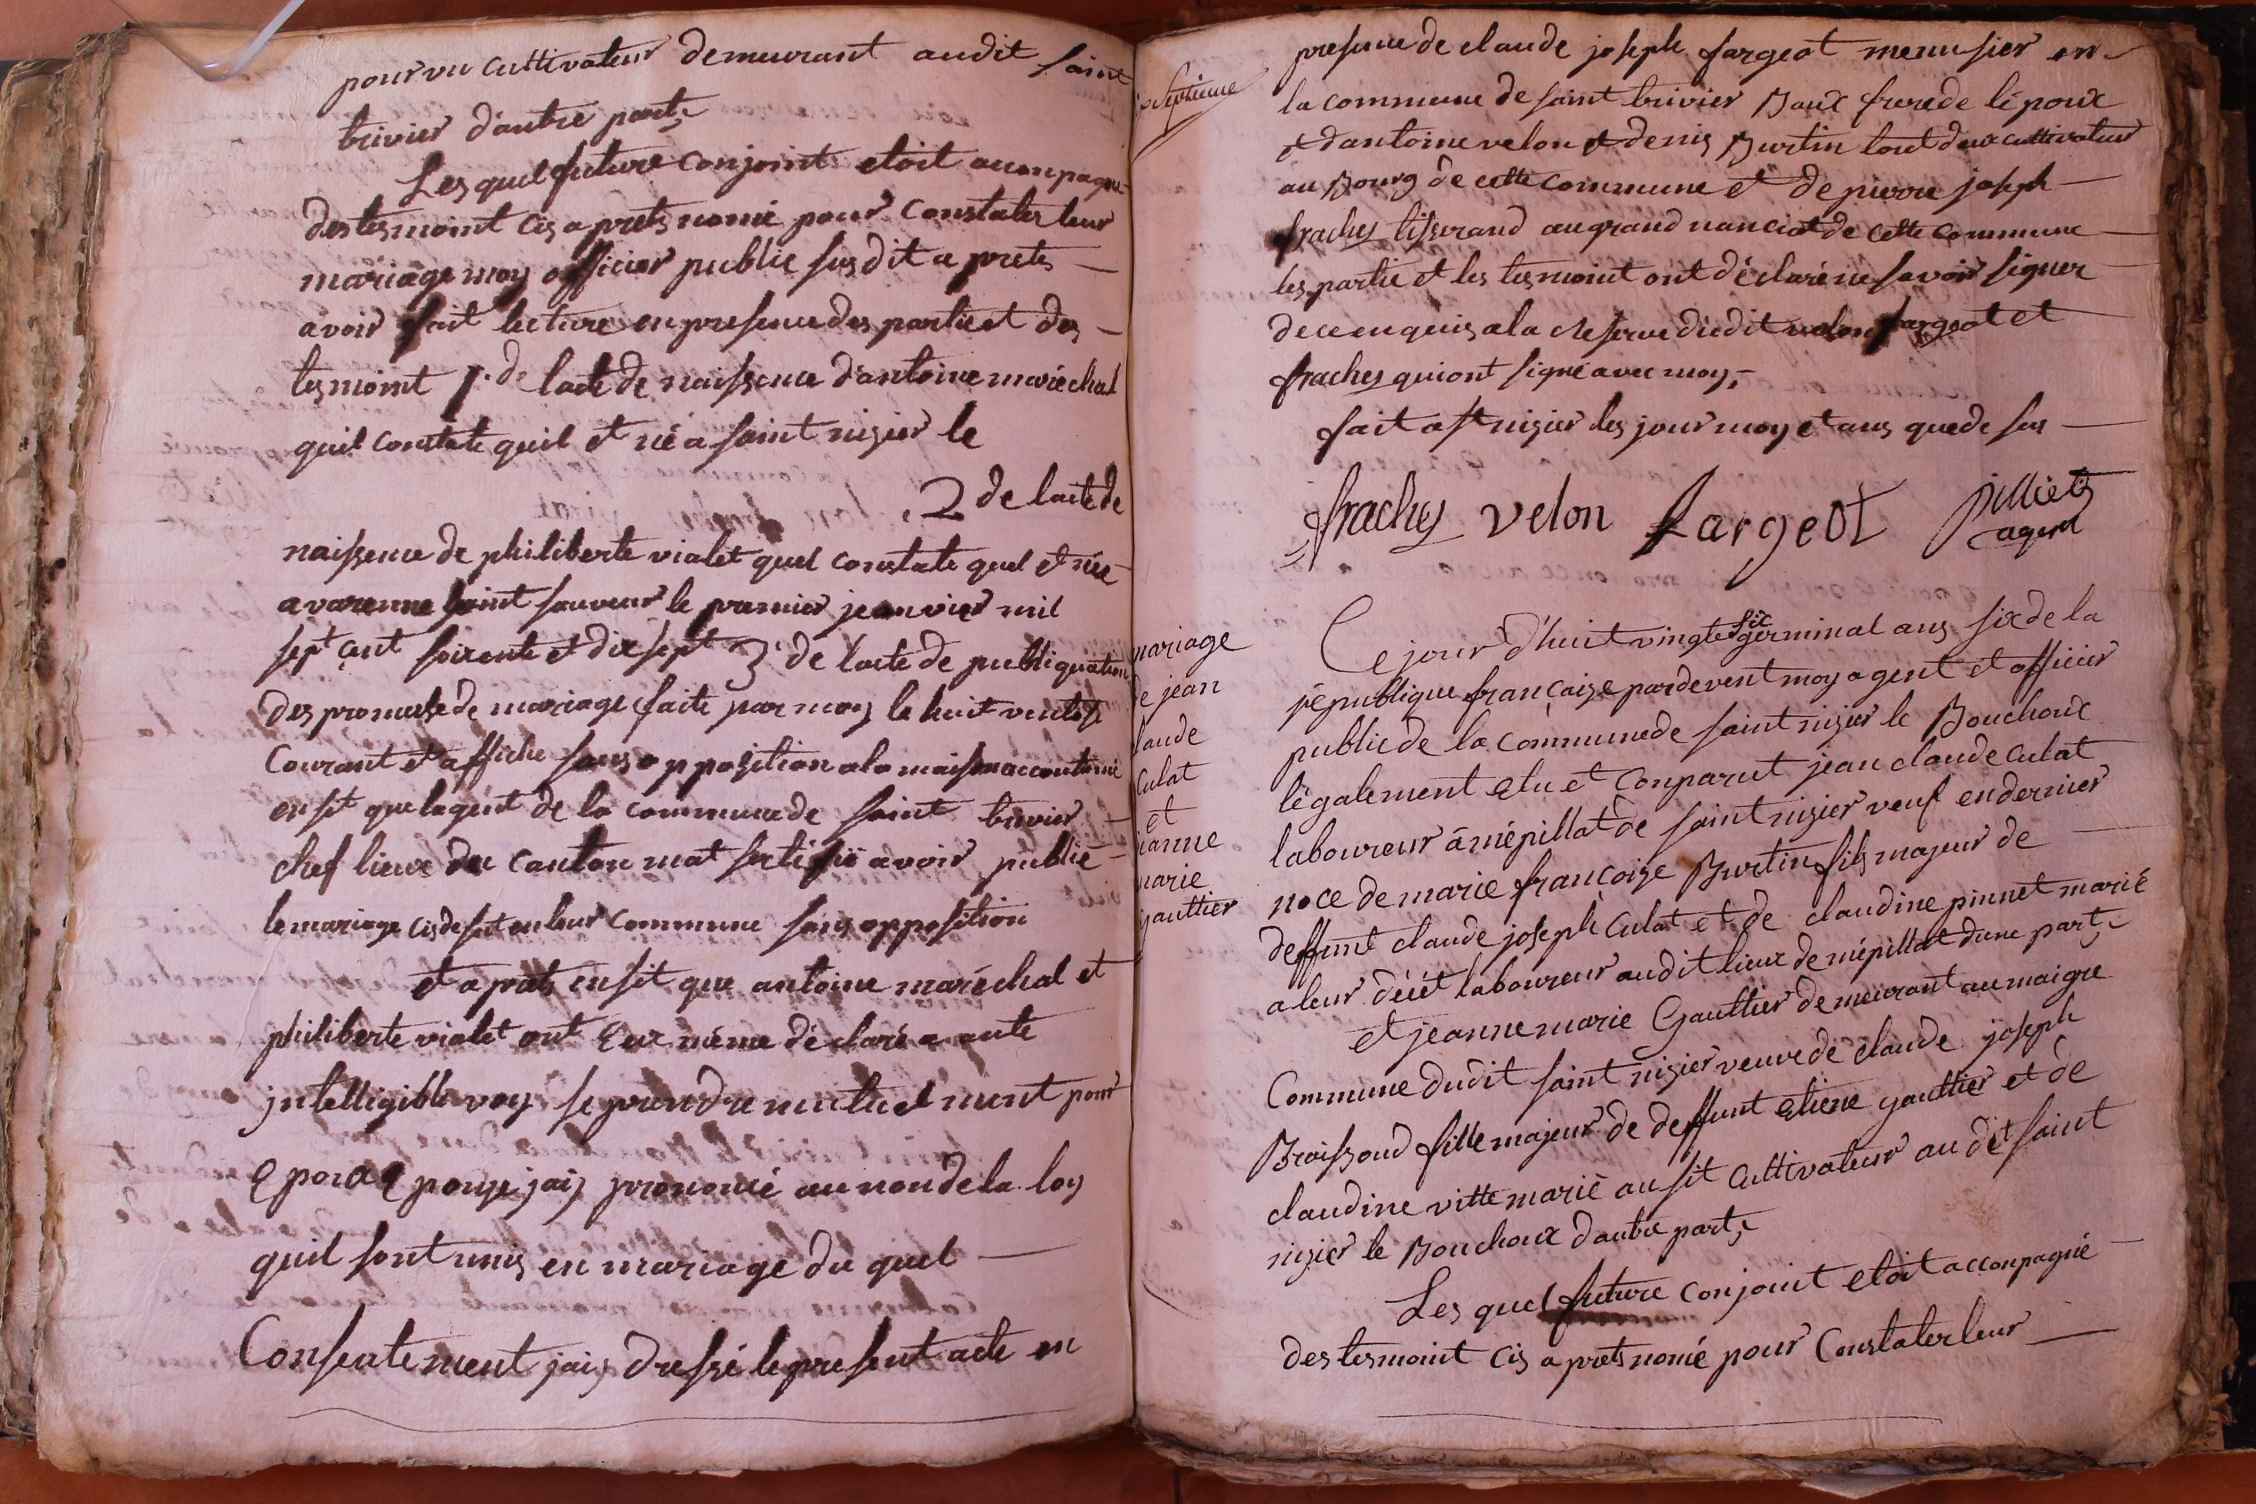 pourvu cultivateur demeurant audit saint
trivier d'autre part,
Les quel future conjoint etoit acompagne
des tesmoint cis aprets nomé pour constater leur
mariage moy officier public susdit a prets
avoir fait lecture en presence des partie et des
tesmoint 1.de lacte de naissence d'antoine maréchal
quil constate quil et né a saint nizier le
2 de lacte de
naissence de philiberte vialet quel constate quel et née
a varenne saint sauveur le premier jeanvier mil
sept cent soixente et dix sept 3.e de lacte de publiquation
des promesse de mariage faite par moy le huit ventose
courant et affiche sans opposition a la maison accoutumé
ensit que lagent de la commune de saint trivier
chef lieux du canton mat sertifié avoir publié
le mariage cis desut en leur commune sans opposition
et a prets ensit que antoine maréchal et
philiberte vialet ont eux méme déclaré a aute
jntelligible voy se prendre mutuel ment pour
epoux epouse jais prononcé au non de la loy
quil sont unis en mariage du quel
Consentement jais dressé le present acte en
septieme
presence de claude joseph fargeot menusier en
la commune de saint trivier Baux frere de lépoux
et dantoine velon et denis Burtin tout deux cultivateur
au Bourg de cette commune et de pierre joseph
fraches tisserand au grand nanciat de cette commune
les partie et les tesmoint ont déclaré ne savoir signer
de ce enquis a la reserve dudit velon fargeot et
fraches qui ont signé avec moy,
fait a st nizier les jour moy et ans que de sus
fraches velon fargeot pilliet
agent
mariage
de jean
claude
culat
et
jeanne
marie
gauttier
Ce jour d'huit vingte six germinal ans six de la
république françaize par devent moy agent et officier
public de la commune de saint nizier le Bouchoux
légalement elu et conparut jean claude culat
laboureur a mépillat de saint nizier veuf en dernier
noce de marie françoize Burtin fils majeur de
deffunt claude joseph culat et de claudine pinnet marié
a leur décét laboureur audit lieux de mépillat dune part,
et jeanne marie Gauttier demeurant au maigre
Commune dudit saint nizier veuve de claude joseph
Braissoud fille majeur de deffunt etiene gauttier et de
claudine vitte marié ausit cultivateur au dit saint
nizier le Bouchoux dautre part,
Les quel future conjoint etoit acconpagné
des tesmoint cis a prets nomé pour Constater leur